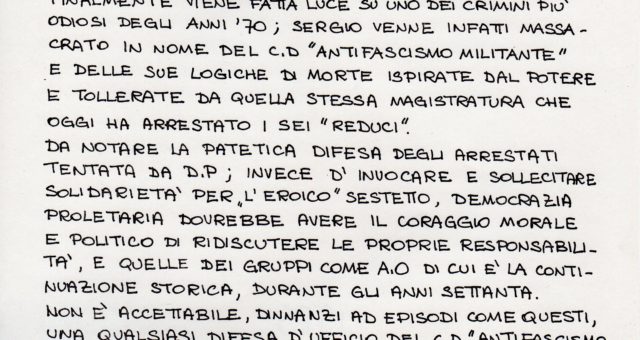 FINALMENTE VIENE FATTA LUCE SU UNO DEI CRIMINI PIU'
ODIOSI DEGLI ANNI '70; SERGIO VENNE INFATTI MASSA-
CRATO IN NOME DEL C.D "ANTIFASCISMO MILITANTE"
E DELLE SUE LOGICHE DI MORTE ISPIRATE DAL POTERE
E TOLLERATE DA QUELLA STESSA MAGISTRATURA CHE
OGGI HA ARRESTATO I SEI "REDUCI".
DA NOTARE LA PATETICA DIFESA DEGLI ARRESTATI
TENTATA DA D.P; INVECE D'INVOCARE E SOLLECITARE
SOLIDARIETA' PER "L'EROICO" SESTETTO, DEMOCRAZIA
PROLETARIA DOVREBBE AVERE IL CORAGGIO MORALE
E POLITICO DI RIDISCUTERE LE PROPRIE RESPONSABILI-
TA', E QUELLE DEI GRUPPI COME A.O DI CUI E' LA CONTI-
NUAZIONE STORICA, DURANTE GLI ANNI SETTANTA.
NON E' ACCETTABILE, DINNANZI AD EPISODI COME QUESTI,
UNA QUALSIASI DIFESA D'UFFICIO DEL C.D "ANTIFASCISMO